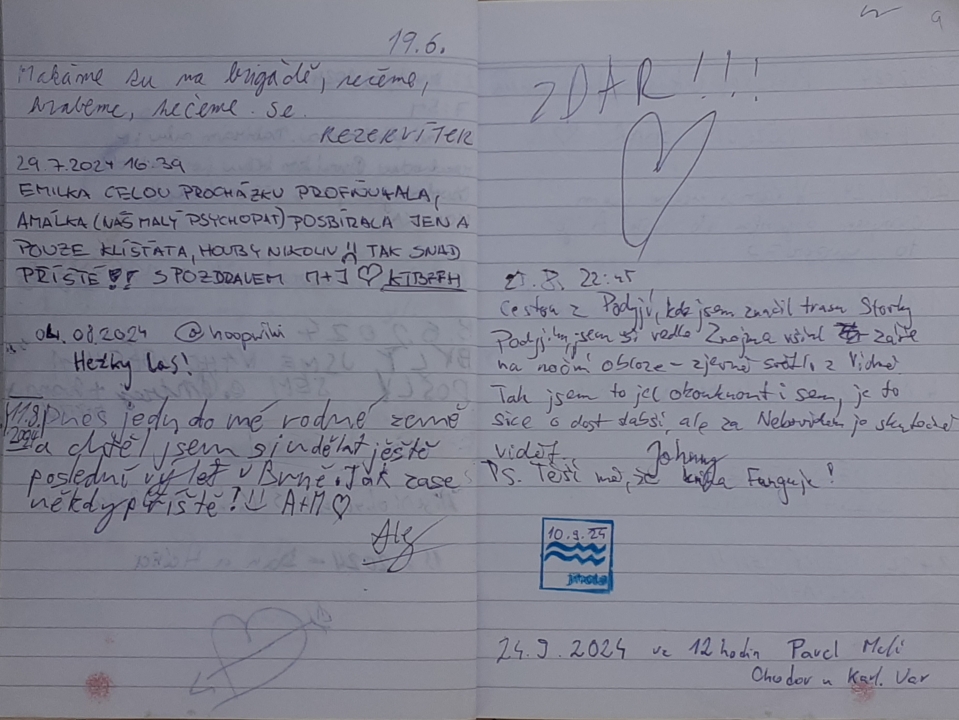 19.6.
Makáme su na brigádě, sečeme,
hrabeme, sečeme se.
REZERVÍTEK
29.7.2024 16:39
EMILKA CELOU PROCHÁZKU PROFŇUKALA,
AMÁLKA (NÁŠ MALÝ PSYCHOPAT) POSBÍRALA JEN A
POUZE KLÍŠŤATA, HOUBY NIKOLIV TAK SNAD
PŘÍŠTĚ!! S POZDRAVEM M+J ♡
04.08.2024 @hoopwiki
Hezky les!
11.8. Dnes jedu do mé rodné země
2024 a chtěl jsem si udělat ještě
poslední výlet v Brně. Tak zase
někdy příště! A+M ♡
Alej
9
ZDAR!!!
8. 22:45
Cestou z Podyjí, kde jsem značil trasu Stovky
Podyjím, jsem si vedle Znojma všiml záře
na noční obloze – zjevně světlo z Vídně.
Tak jsem to jel okouknout i sem, je to
sice o dost slabší, ale za Nebovidem je skutečně
vidět. Johnny
PS. Těší mě, že kniha Funguje!
10.9.24
24.9.2024 ve 12 hodin Pavel
Chodov u Karl. Var